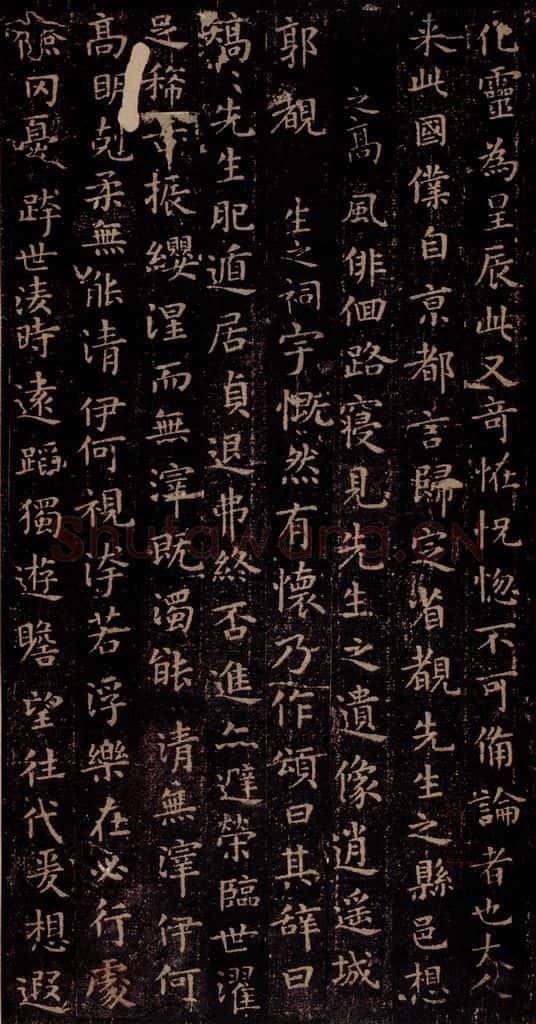 化靈為星辰此又奇恠怳惚不可備論者也大人
来此國僕自京都言歸定省覩先生之縣邑想
之高風俳佪路寝見先生之遺像逍遥城
郭覩生之祠宇慨然有懷乃作頌曰其辞曰
先生肥遁居貞退弗終否進亦避榮臨世濯
足稀古振纓涅而無滓既濁能清無滓伊何
高明剋柔無能清伊何視洿若浮樂在必行處
儉罔憂跨世淩時遠蹈獨遊瞻望往代爰想遐
Shufawang.CN